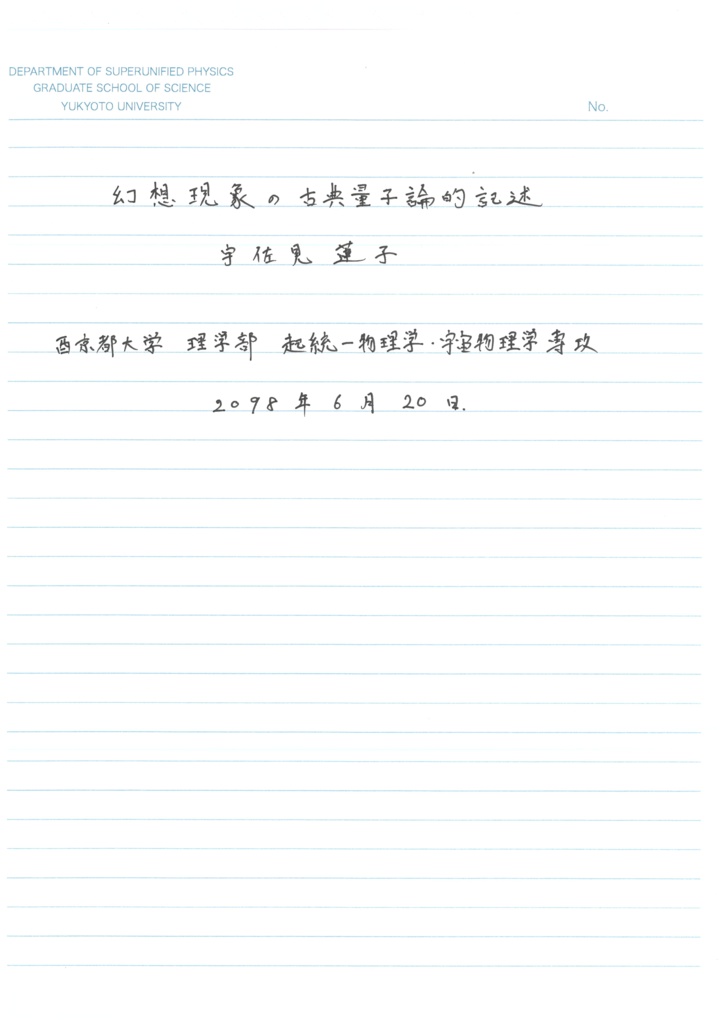 DEPARTMENT OF SUPERUNIFIED PHYSICS
GRADUATE SCHOOL OF SCIENCE
YUKYOTO UNIVERSITY
No.
幻想現象の古典量子論的記述
宇佐見 蓮子
酉京都大学 理学部 超統一物理学・宇宙物理学専攻
2098年6月20日.